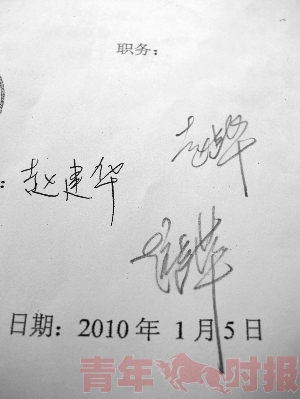 职务：
: 赵建华
日期：2010年 1月5日
青年时报